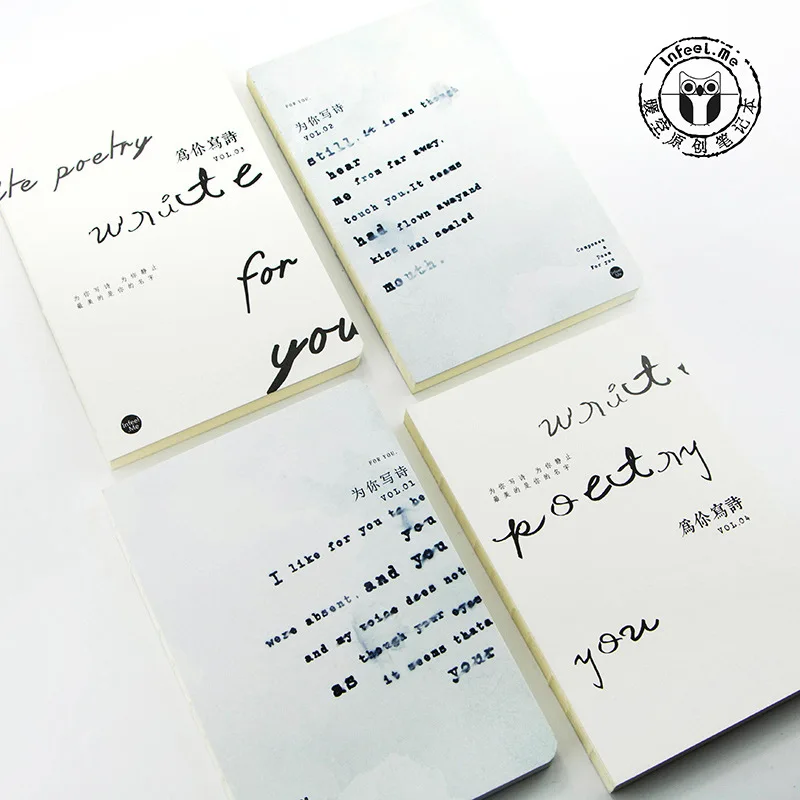 Infeel.Me
暖空原创笔记本
poetry
為你寫詩
VOL.03
write
for
you
为你写诗 为你静止
最美的是你的名字
Infeel
Me
FOR YOU.
为你写诗
VOL.02
still.it is as though
hear
me from far away.
touch you.It seems
had flown awayand
kiss had sealed
mouth.
Compose
a
Poem
For you
FOR YOU.
为你写诗
VOL.01
I like for you to be
you
were absent. and you
and my voice does not
as though your eyes
it seems thata
your
为你写诗 为你静止
最美的是你的名字
poetry
為你寫詩
VOL.04
you